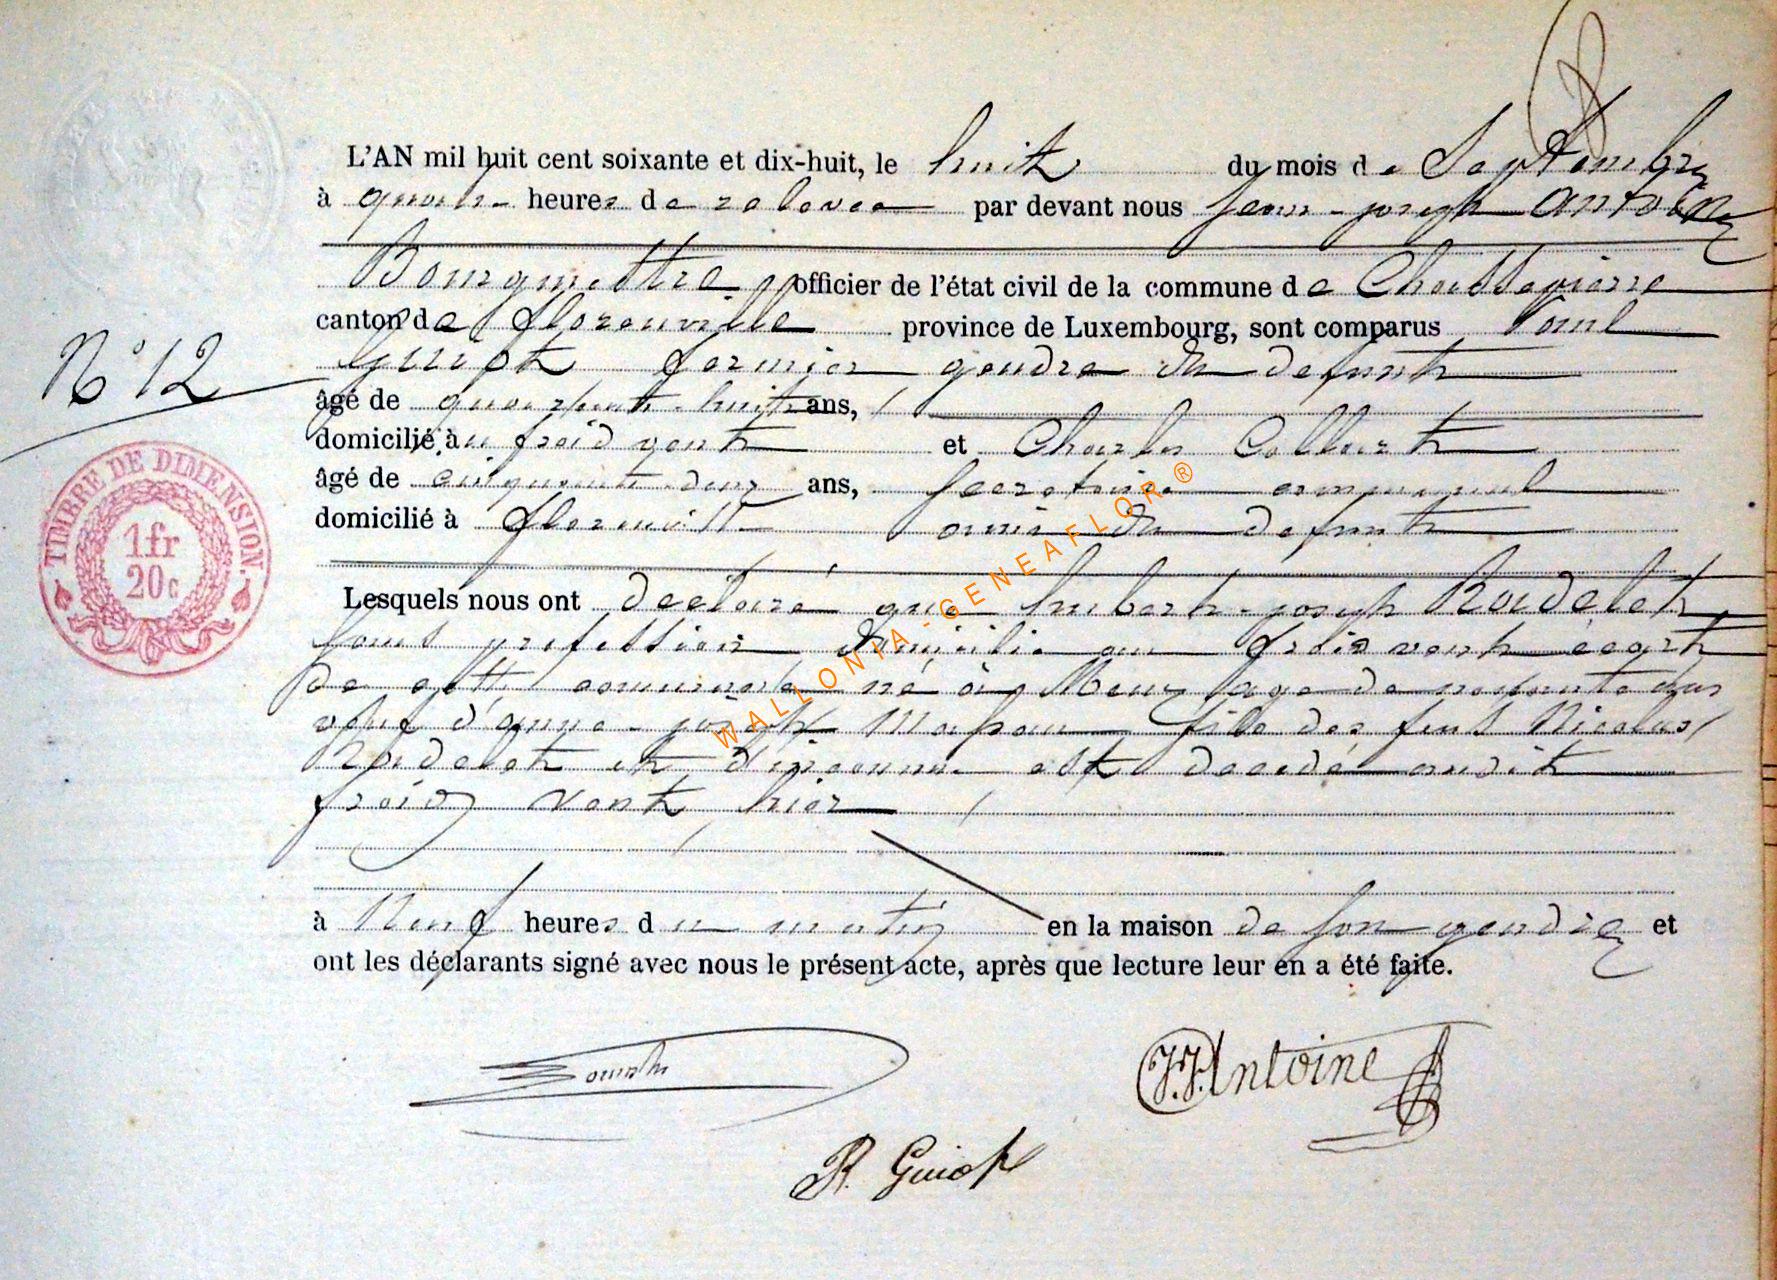 L'AN mil huit cent soixante et dix-huit, le huit du mois de Septembre
à quatre heures de relevée par devant nous Jean-joseph Antoine
Bourgmestre officier de l'état civil de la commune de Chassepierre
canton de florenville province de Luxembourg, sont comparus Paul
Guiot fermier gendre du defunt
N° 12
âgé de quarante-huit ans,
domicilié au froid vent et Charles Collart
âgé de cinquante-deux ans, secretaire communal
domicilié à florenville ami du defunt
TIMBRE DE DIMENSION.
1fr
20c
Lesquels nous ont declaré que hubert-joseph Rodelet
sans profession domicilié au froid vent écart
de cette commune né à agé de ans
veuf d'anne-joseph fils des feus Nicolas
Rodelet et d'inconnue est decedé audit
froid vent hier
à Neuf heures du matin en la maison de son gendre et
ont les déclarants signé avec nous le présent acte, après que lecture leur en a été faite.
J.J. Antoine
P. Guiot
WALLONIA-GENEAFLOR®